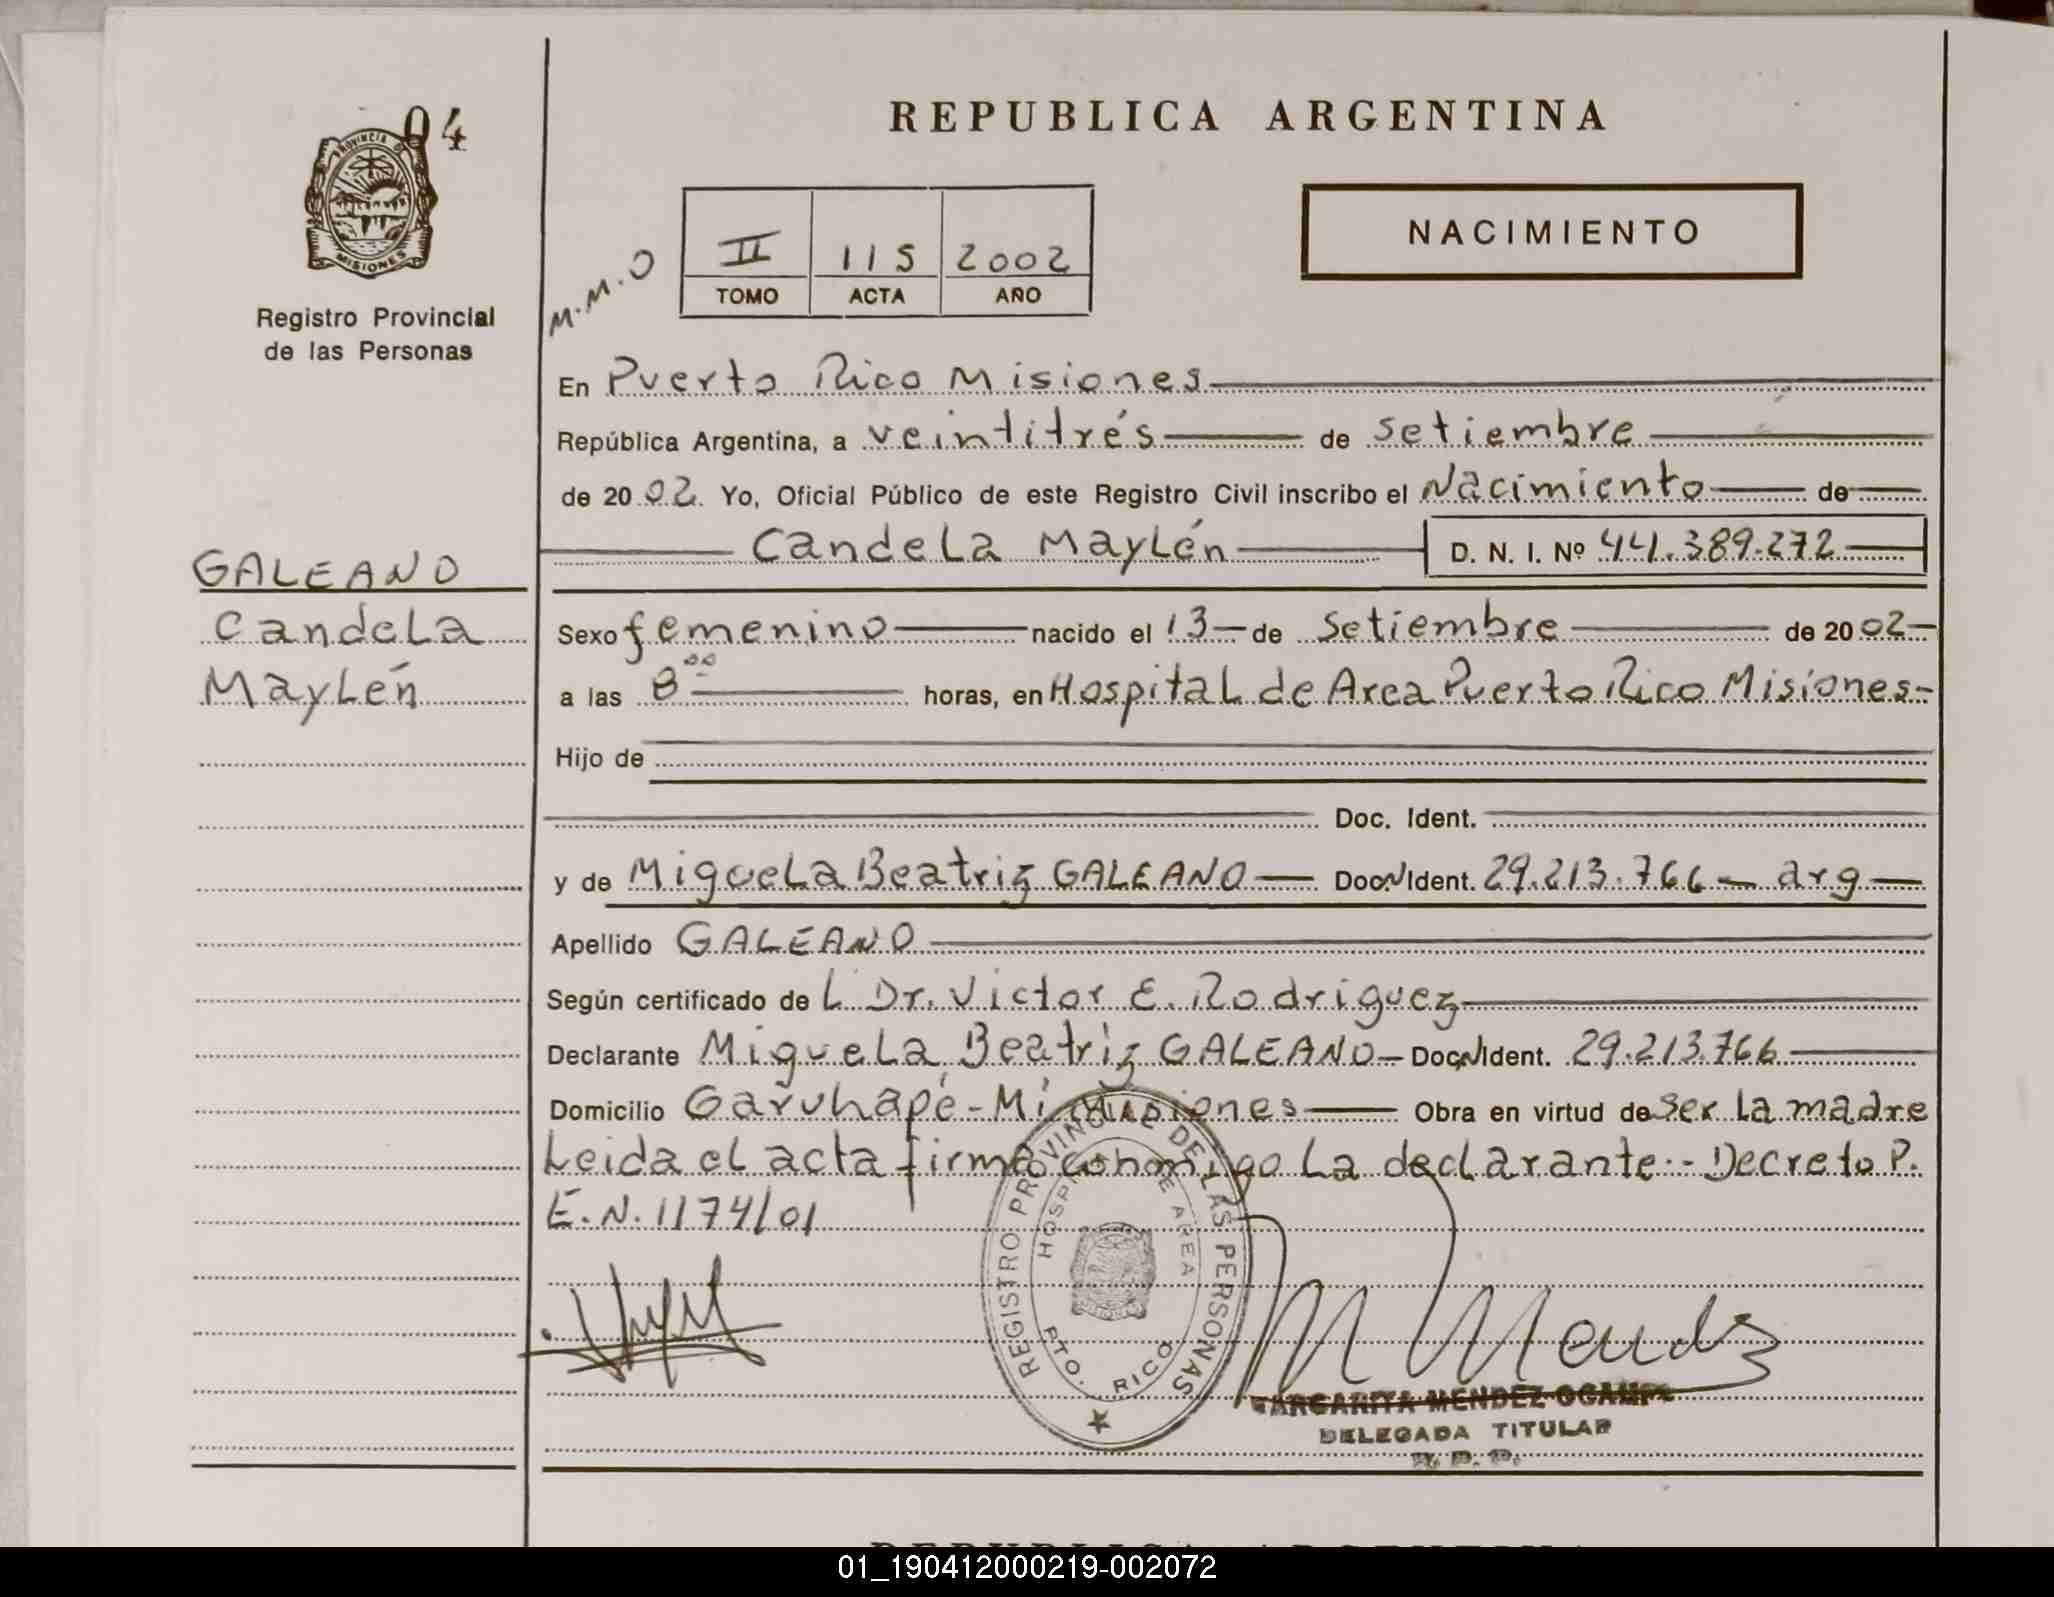 04
PROVINCIA DE
MISIONES
Registro Provincial
de las Personas
REPUBLICA ARGENTINA
NACIMIENTO
M.M.O
II 115 2002
TOMO ACTA AÑO
En Puerto Rico Misiones
República Argentina, a veintitrés de setiembre
de 2002. Yo, Oficial Público de este Registro Civil inscribo el Nacimiento de
Candela Maylén D. N. I. Nº 44.389.272
GALEANO
Candela
Maylén
Sexo femenino nacido el 13 de setiembre de 2002
a las 8⁰⁰ horas, en Hospital de Area Puerto Rico Misiones
Hijo de
Doc. Ident.
y de Miguela Beatriz GALEANO Doc N Ident. 29.213.766 - arg
Apellido GALEANO
Según certificado de L Dr. Victor E. Rodriguez
Declarante Miguela Beatriz GALEANO Doc N Ident. 29.213.766
Domicilio Garuhapé - Mí Misiones Obra en virtud de ser la madre
Leida el acta firma conmigo la declarante.- Decreto P.
E.N. 1174/01
REGISTRO PROVINCIAL DE LAS PERSONAS
HOSPITAL DE AREA
PTO. RICO
M Mendz
MARGARITA MENDEZ OCAMPO
DELEGADA TITULAR
R. P. P.
REPUBLICA ARGENTINA
01_190412000219-002072